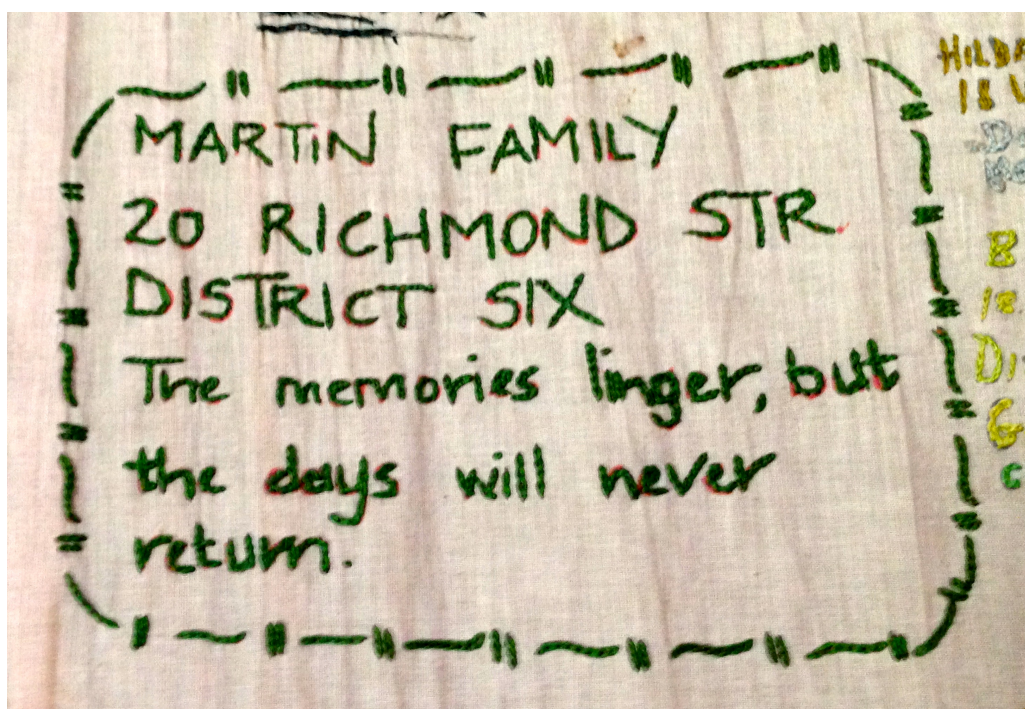 MARTiN FAMILY
20 RICHMOND STR.
DISTRICT SIX
The memories linger, but
the days will never
return.